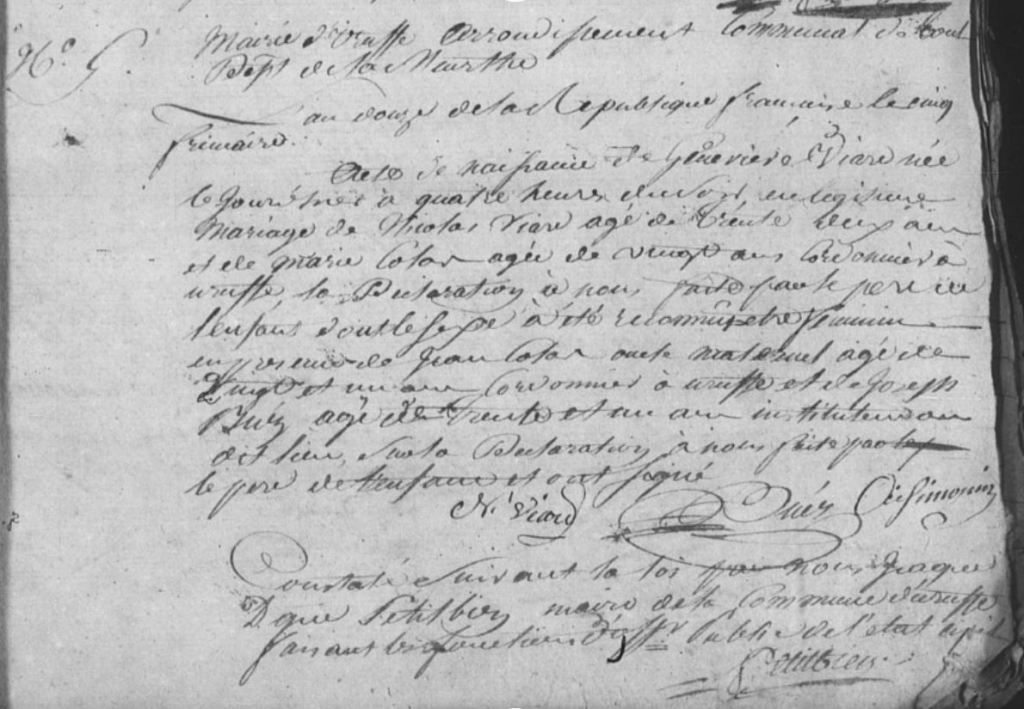 No. 5.
Mairie d'Uruffe arrondissement Communal de Toul
Dept de la Meurthe
L'an douze de la Republique francaise le cinq
frimaire.
Acte de naissance de Genevieve Viard née
le jour d'hier à quatre heures du soir, en legitime
Mariage de Nicolas Viard agé de trente deux ans
et de Marie Colas agée de vingt ans Cordonnier à
uruffe, la Declaration à nous faite par le pere de
l'enfant dont le sexe à été reconnu etre feminin
en presence de Jean Colas oncle maternel agé de
Vingt et un ans Cordonnier à uruffe et de Joseph
agé de trente et un ans instituteur au
dit lieu, sur la Declaration à nous faite par
le pere de l'enfant et ont signé
N. Viard
Constaté Suivant la loi par nous Jaque
Petitbien maire de la Commune d'uruffe
faisant les fonctions d'offr Public de l'etat civil
Petitbien